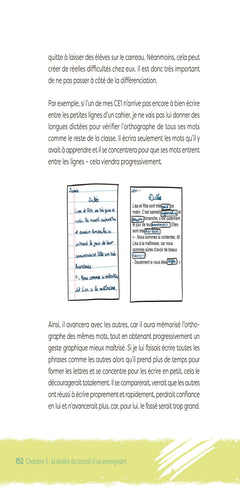 quitte à laisser des élèves sur le carreau. Néanmoins, cela peut
créer de réelles difficultés chez eux. Il est donc très important
de ne pas passer à côté de la différenciation.
Par exemple, si l'un de mes CE1 n'arrive pas encore à bien écrire
entre les petites lignes d'un cahier, je ne vais pas lui donner des
longues dictées pour vérifier l'orthographe de tous ses mots
comme le reste de la classe. Il écrira seulement les mots qu'il y
avait à apprendre et il se concentrera pour que ses mots entrent
entre les lignes – cela viendra progressivement.
Dictée
Lisa et Rita sont très
Dictée
Lisa et Rita sont très
mar. C'est samedi
dimanche. C'est justement
le jour de leur
sont très
« - Nous sommes si contentes, dit
Lisa à la maîtresse, car nous
sommes sûres d'avoir de beaux
- Seulement si vous êtes
Ainsi, il avancera avec les autres, car il aura mémorisé l'ortho-
graphe des mêmes mots, tout en obtenant progressivement un
geste graphique mieux maîtrisé. Si je lui faisais écrire toutes les
phrases comme les autres alors qu'il prend plus de temps pour
former les lettres et se concentre pour les écrire en petit, cela le
découragerait totalement. Il se comparerait, verrait que les autres
ont réussi à écrire proprement et rapidement, perdrait confiance
en lui et n'avancerait plus, car, pour lui, le fossé serait trop grand.
152 Chapitre 3 : la réalité du travail d'un enseignant